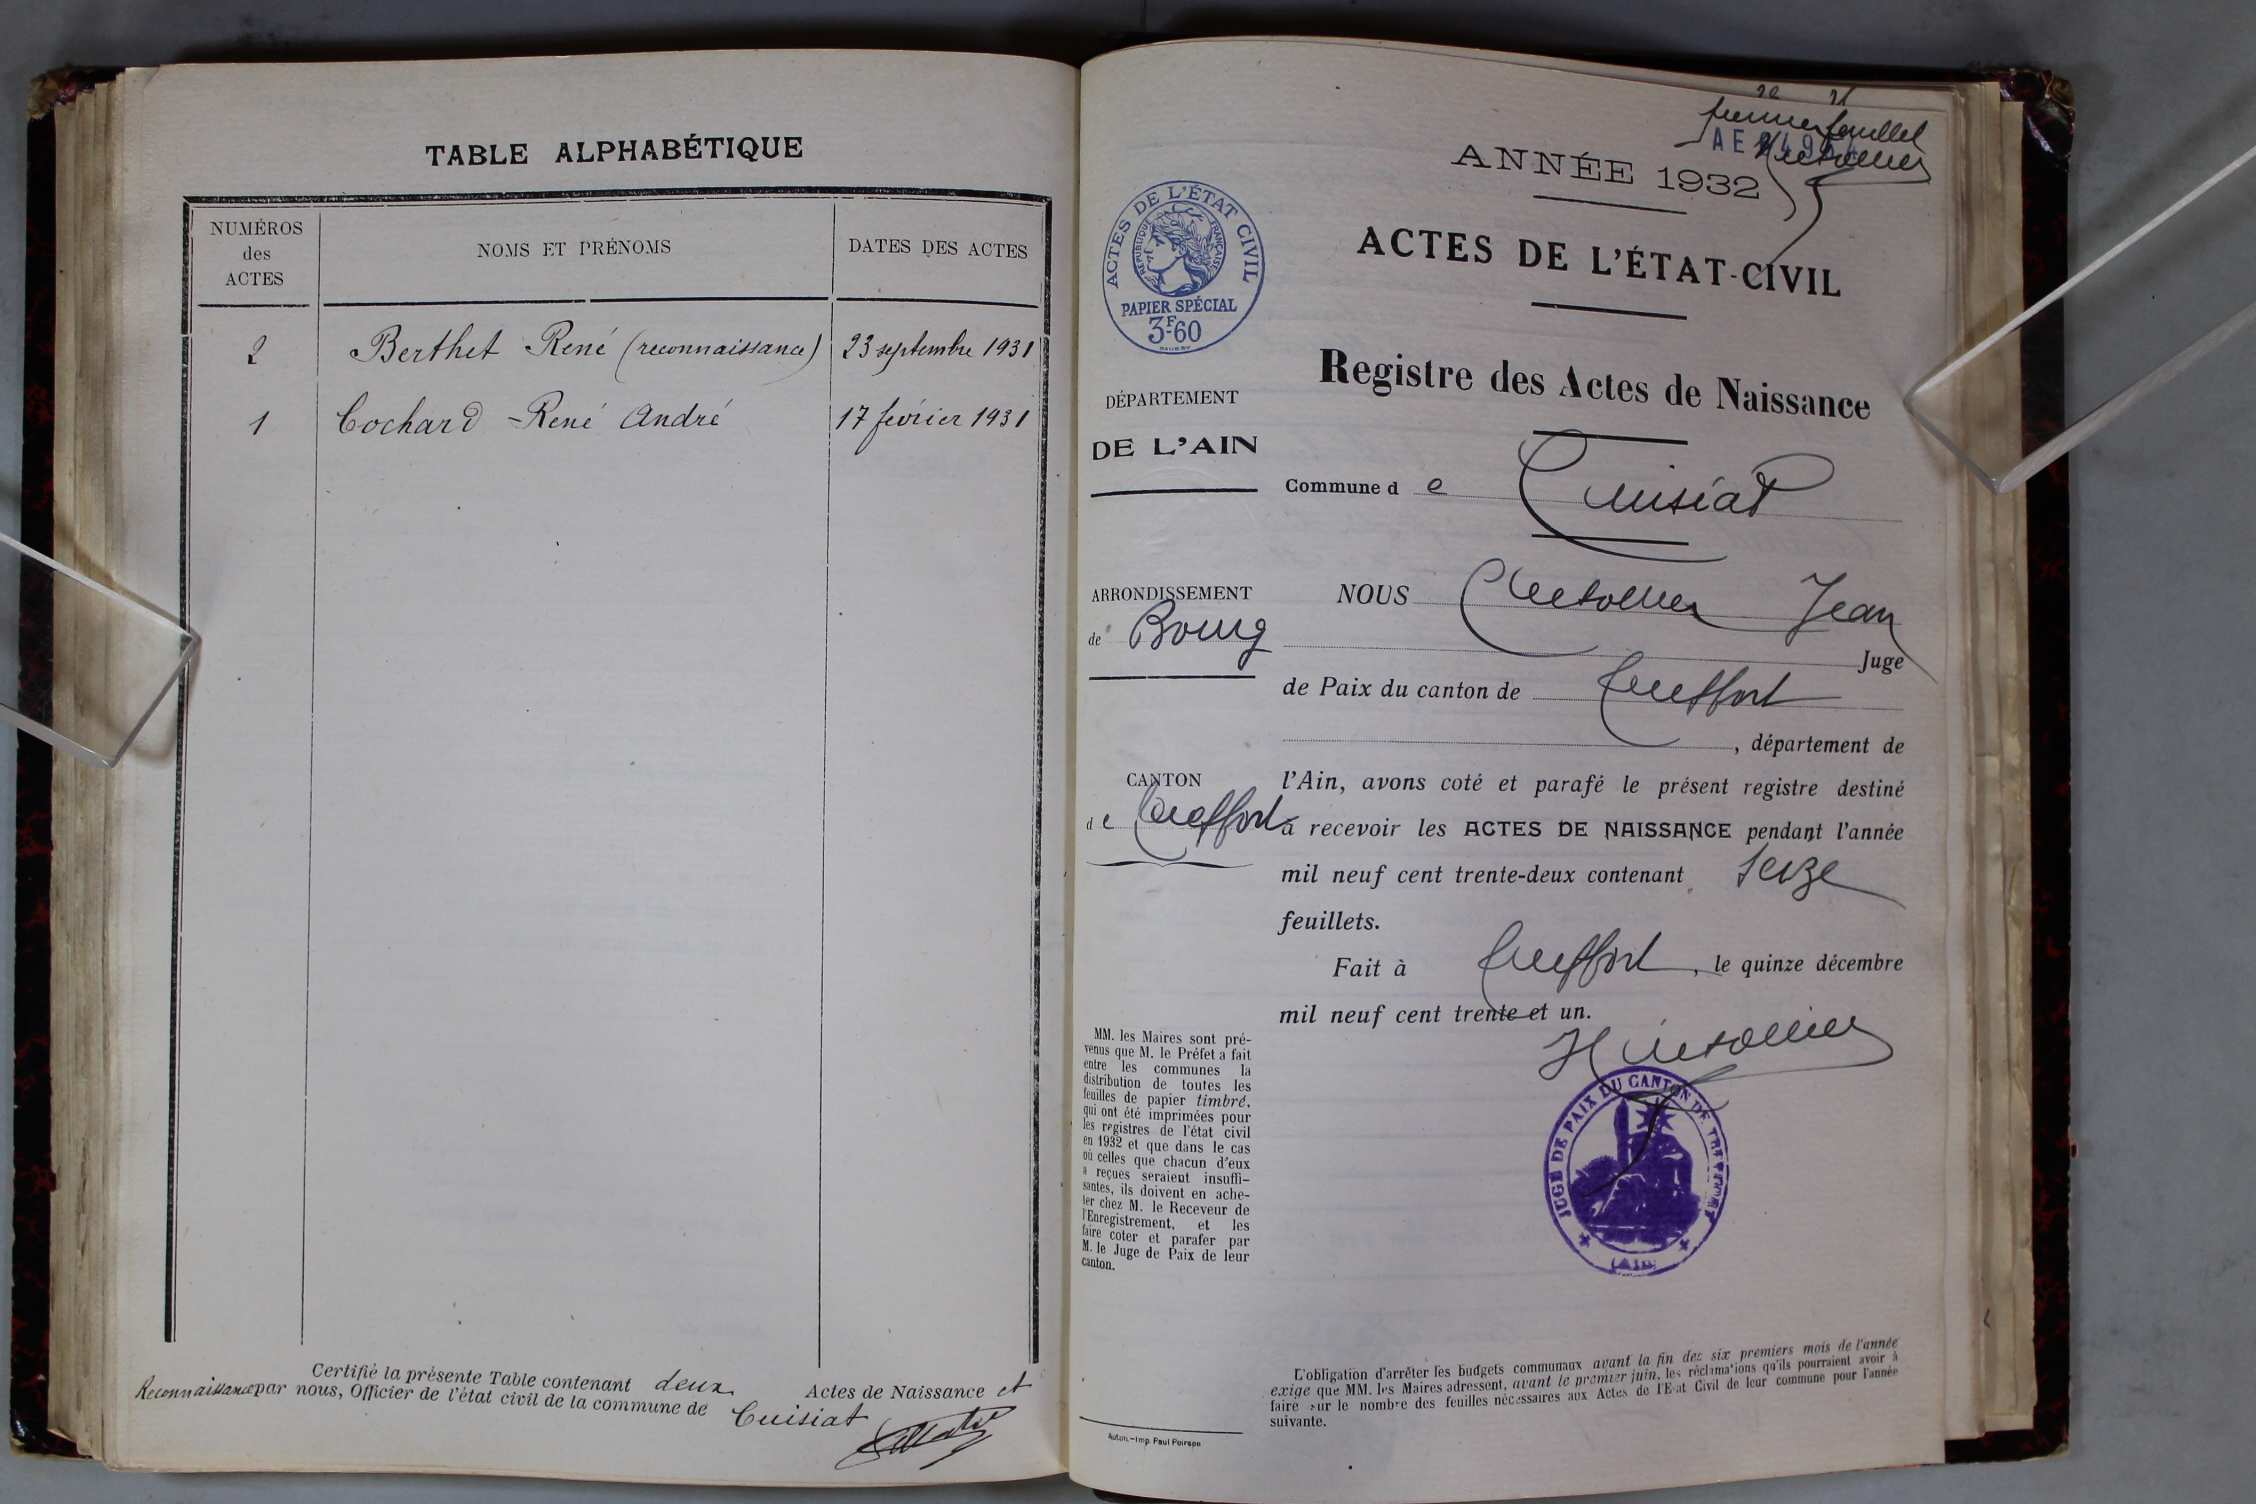 TABLE ALPHABÉTIQUE
NUMÉROS
des
ACTES
NOMS ET PRÉNOMS
DATES DES ACTES
2 Berthet René (reconnaissance) 23 septembre 1931
1 Cochard René André 17 février 1931
Certifié la présente Table contenant deux Actes de Naissance et
Reconnaissance par nous, Officier de l'état civil de la commune de Cuisiat
premier feuillet
ANNÉE 1932
ACTES DE L'ÉTAT-CIVIL
Registre des Actes de Naissance
ACTES DE L'ÉTAT CIVIL
RÉPUBLIQUE FRANÇAISE
PAPIER SPÉCIAL
3F-60
DÉPARTEMENT
DE L'AIN
ARRONDISSEMENT
de Bourg
CANTON
de Treffort
MM. les Maires sont pré-
venus que M. le Préfet a fait
entre les communes la
distribution de toutes les
feuilles de papier timbré,
qui ont été imprimées pour
les registres de l'état civil
en 1932 et que dans le cas
où celles que chacun d'eux
a reçues seraient insuffi-
santes, ils doivent en ache-
ter chez M. le Receveur de
l'Enregistrement, et les
faire coter et parafer par
M. le Juge de Paix de leur
canton.
Autun.-Imp. Paul
Commune de Cuisiat
NOUS Jean
Juge
de Paix du canton de Treffort
, département de
l'Ain, avons coté et parafé le présent registre destiné
à recevoir les ACTES DE NAISSANCE pendant l'année
mil neuf cent trente-deux contenant seize
feuillets.
Fait à Treffort, le quinze décembre
mil neuf cent trente et un.
JUGE DE PAIX DU CANTON DE TREFFORT
(AIN)
L'obligation d'arrêter les budgets communaux avant la fin des six premiers mois de l'année
exige que MM. les Maires adressent, avant le premier juin, les réclamations qu'ils pourraient avoir à
faire sur le nombre des feuilles nécessaires aux Actes de l'État Civil de leur commune pour l'année
suivante.